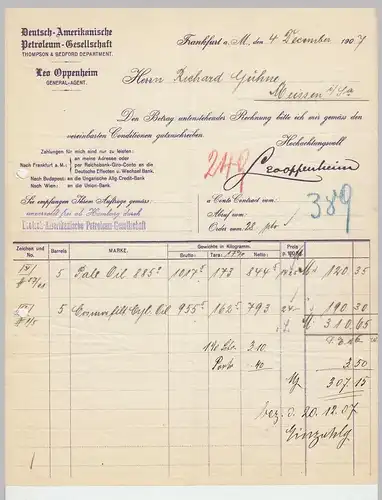 Deutsch-Amerikanische
Petroleum-Gesellschaft
THOMPSON & BEDFORD DEPARTMENT.
Leo Oppenheim
GENERAL-AGENT.
Frankfurt a. M., den 4 December 1907
Herrn Richard Gühne
Meissen
Den Betrag untenstehender Rechnung bitte ich mir gemäss den
vereinbarten Conditionen gutzuschreiben.
Hochachtungsvoll
Leo Oppenheim
Zahlungen für mich sind nur zu leisten:
an meine Adresse oder
Nach Frankfurt a. M.: per Reichsbank-Giro-Conto an die
Deutsche Effecten u. Wechsel Bank.
Nach Budapest: an die Ungarische Allg. Credit-Bank
Nach Wien: an die Union-Bank.
249
389
Sie empfangen Ihrem Auftrage gemäss:
unverzollt frei ab Hamburg durch
Deutsch-Amerikanische Petroleum-Gesellschaft
a Conto Contract vom
Abruf vom
Order vom 28.
Zeichen und No.
Barrels
MARKE.
Gewichte in Kilogramm.
Brutto: Tara: Netto:
Preis
5 Pale Oil 885° 1017 5 173 844 5 120 35
5 Cyl. Oil 955 5 162 5 793 24 190 30
310 65
3.10
Porto 40
3 50
307 15
bez. d. 20.12.07